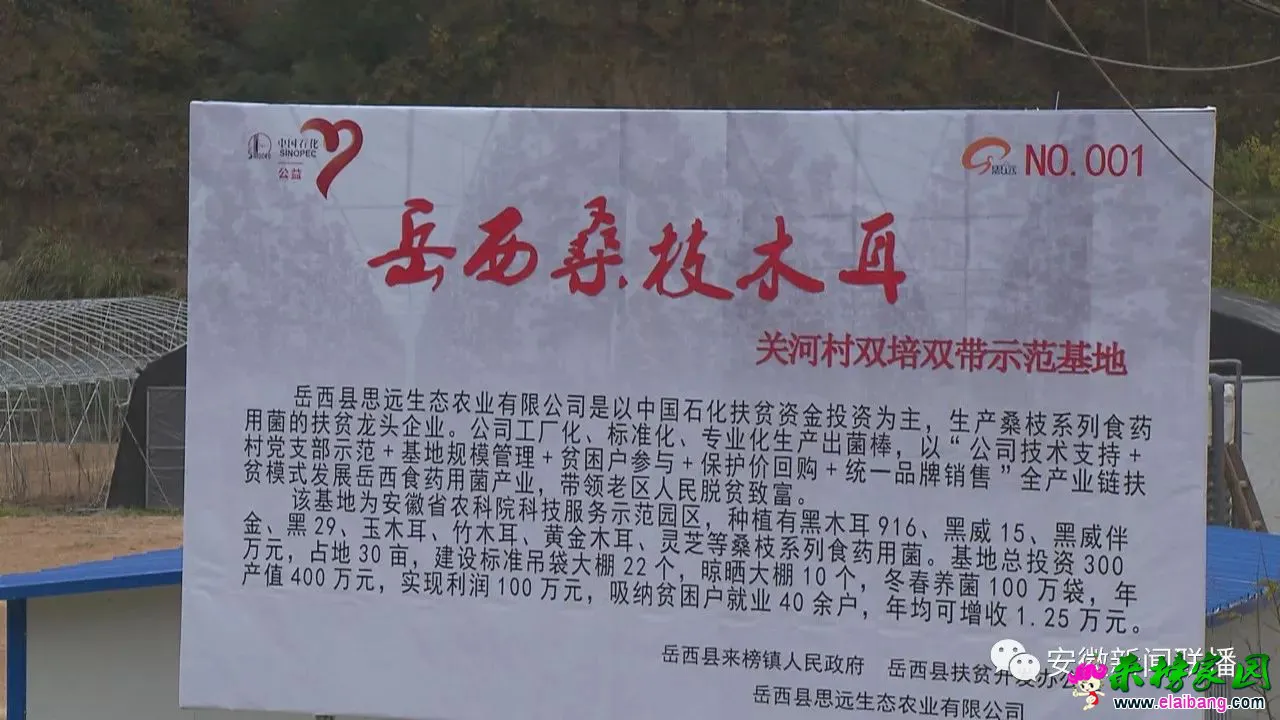 中国石化
SINOPEC
公益
思远
NO.001
岳西桑枝木耳
关河村双培双带示范基地
岳西县思远生态农业有限公司是以中国石化扶贫资金投资为主，生产桑枝系列食药
用菌的扶贫龙头企业。公司工厂化、标准化、专业化生产出菌棒，以“公司技术支持+
村党支部示范+基地规模管理+贫困户参与+保护价回购+统一品牌销售”全产业链扶
贫模式发展岳西食药用菌产业，带领老区人民脱贫致富。
该基地为安徽省农科院科技服务示范园区，种植有黑木耳916、黑威15、黑威伴
金、黑29、玉木耳、竹木耳、黄金木耳、灵芝等桑枝系列食药用菌。基地总投资300
万元，占地30亩，建设标准吊袋大棚22个，晾晒大棚10个，冬春养菌100万袋，年
产值400万元，实现利润100万元，吸纳贫困户就业40余户，年均可增收1.25万元。
岳西县来榜镇人民政府 岳西县扶贫开发办公
岳西县思远生态农业有限公司
安徽新闻联播
来榜家园
www.elaibang.com